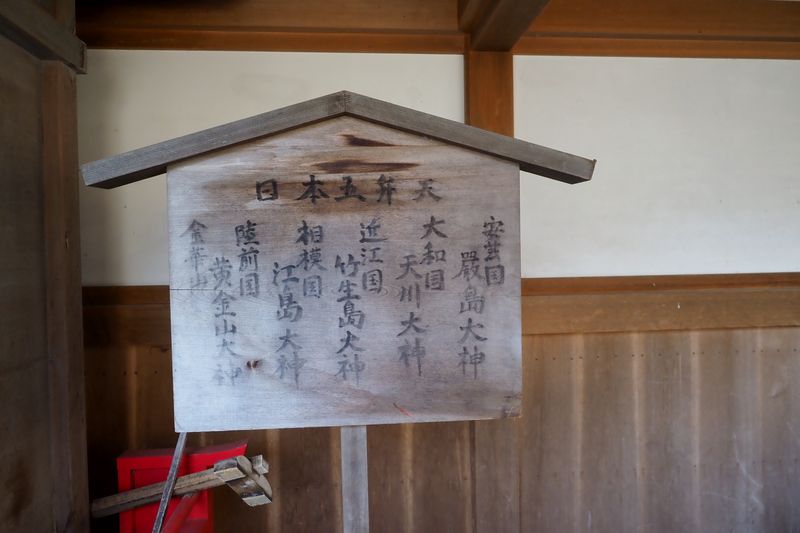 日本五弁天
安芸国
嚴島大神
大和国
天川大神
近江国
竹生島大神
相模国
江島大神
陸前国
黄金山大神
金華山